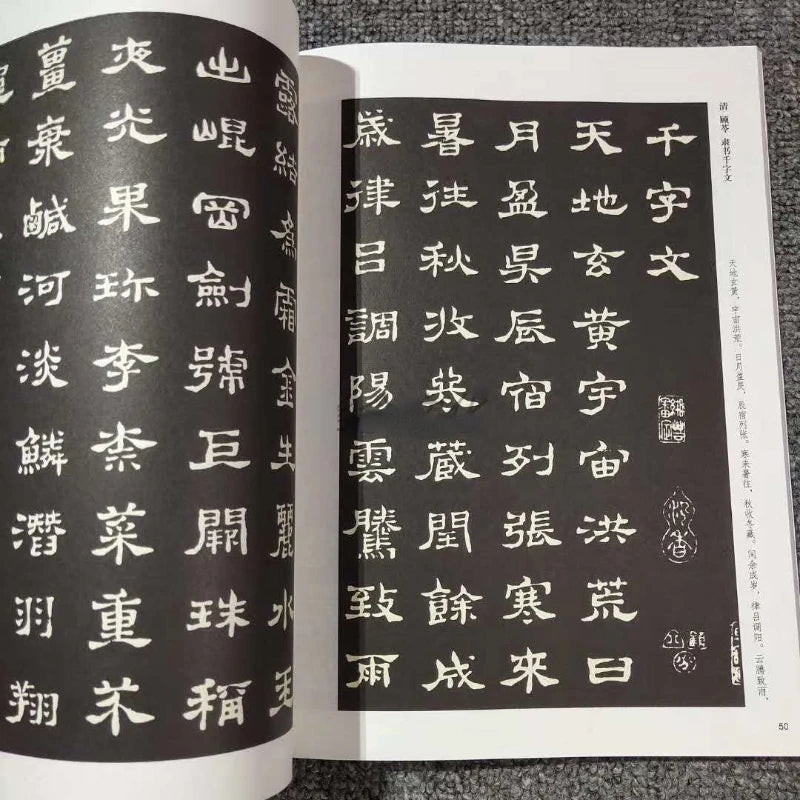 清 顾苓 隶书千字文
天地玄黄，宇宙洪荒。日月盈昃，辰宿列张。寒来暑往，秋收冬藏。闰余成岁，律吕调阳。云腾致雨，
千字文
天地玄黄宇宙洪荒日
月盈昃辰宿列張寒來
暑往秋收冬藏閏餘成
歲律吕調陽雲騰致雨
50
露結為霜金生麗水玉
出崐岡劍號巨闕珠稱
夜光果珍李柰菜重芥
薑海鹹河淡鱗潛羽翔